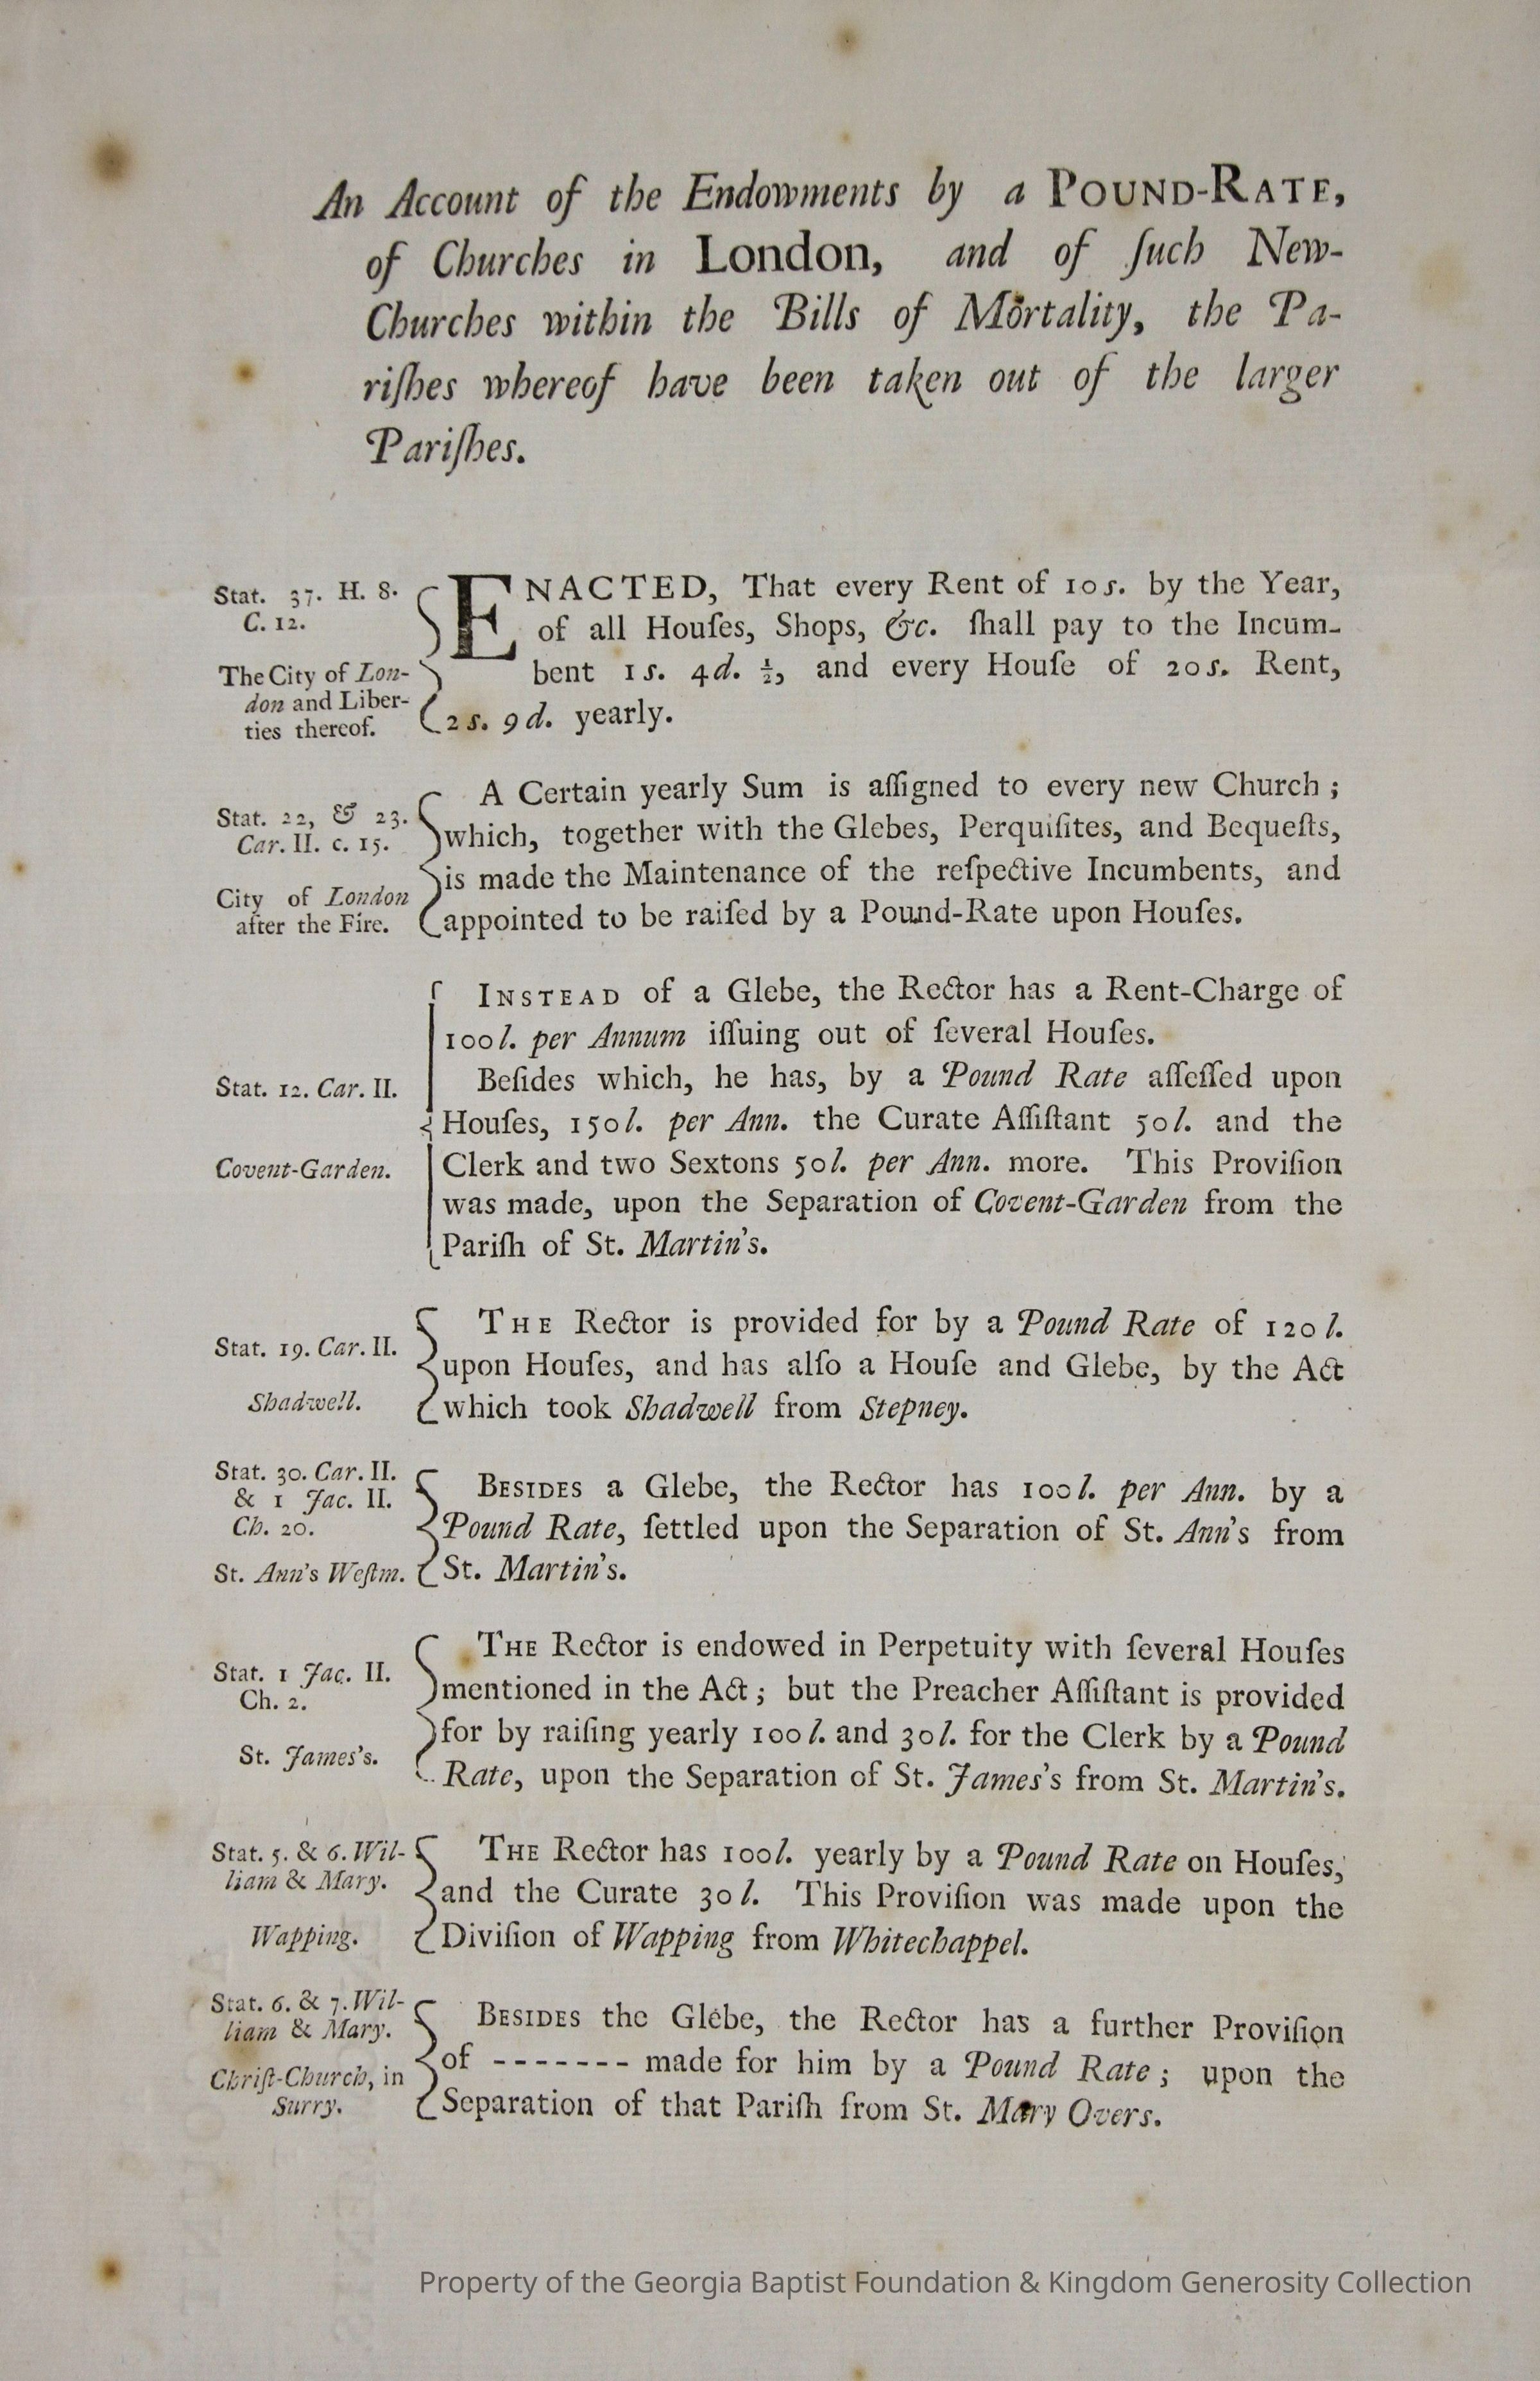 An Account of the Endowments by a POUND-RATE,
of Churches in London, and of ſuch New-
Churches within the Bills of Mortality, the Pa-
riſhes whereof have been taken out of the larger
Pariſhes.
Stat. 37. H. 8.
C. 12.
The City of Lon-
don and Liber-
ties thereof.
ENACTED, That every Rent of 10 s. by the Year,
of all Houſes, Shops, &c. ſhall pay to the Incum-
bent 1 s. 4 d. ½, and every Houſe of 20 s. Rent,
2 s. 9 d. yearly.
Stat. 22, & 23.
Car. II. c. 15.
City of London
after the Fire.
A Certain yearly Sum is aſſigned to every new Church ;
which, together with the Glebes, Perquiſites, and Bequeſts,
is made the Maintenance of the reſpective Incumbents, and
appointed to be raiſed by a Pound-Rate upon Houſes.
Stat. 12. Car. II.
Covent-Garden.
INSTEAD of a Glebe, the Rector has a Rent-Charge of
100 l. per Annum iſſuing out of ſeveral Houſes.
Beſides which, he has, by a Pound Rate aſſeſſed upon
Houſes, 150 l. per Ann. the Curate Aſſiſtant 50 l. and the
Clerk and two Sextons 50 l. per Ann. more. This Proviſion
was made, upon the Separation of Covent-Garden from the
Pariſh of St. Martin's.
Stat. 19. Car. II.
Shadwell.
THE Rector is provided for by a Pound Rate of 120 l.
upon Houſes, and has alſo a Houſe and Glebe, by the Act
which took Shadwell from Stepney.
Stat. 30. Car. II.
& 1 Jac. II.
Ch. 20.
St. Ann's Weſtm.
BESIDES a Glebe, the Rector has 100 l. per Ann. by a
Pound Rate, ſettled upon the Separation of St. Ann's from
St. Martin's.
Stat. 1 Jac. II.
Ch. 2.
St. James's.
THE Rector is endowed in Perpetuity with ſeveral Houſes
mentioned in the Act ; but the Preacher Aſſiſtant is provided
for by raiſing yearly 100 l. and 30 l. for the Clerk by a Pound
Rate, upon the Separation of St. James's from St. Martin's.
Stat. 5. & 6. Wil-
liam & Mary.
Wapping.
THE Rector has 100 l. yearly by a Pound Rate on Houſes,
and the Curate 30 l. This Proviſion was made upon the
Diviſion of Wapping from Whitechappel.
Stat. 6. & 7. Wil-
liam & Mary.
Chriſt-Church, in
Surry.
BESIDES the Glebe, the Rector has a further Proviſion
of ------- made for him by a Pound Rate ; upon the
Separation of that Pariſh from St. Mary Overs.
Property of the Georgia Baptist Foundation & Kingdom Generosity Collection